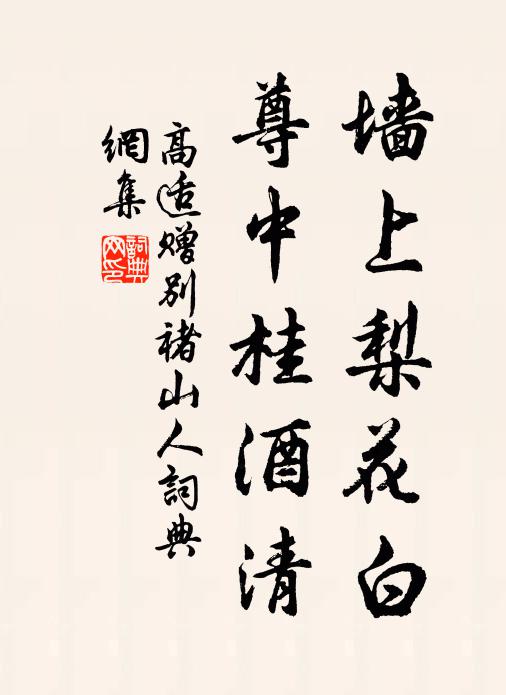 墙上梨花白
尊中桂酒清
高适赠别褚山人詞典
網集
詞典網印